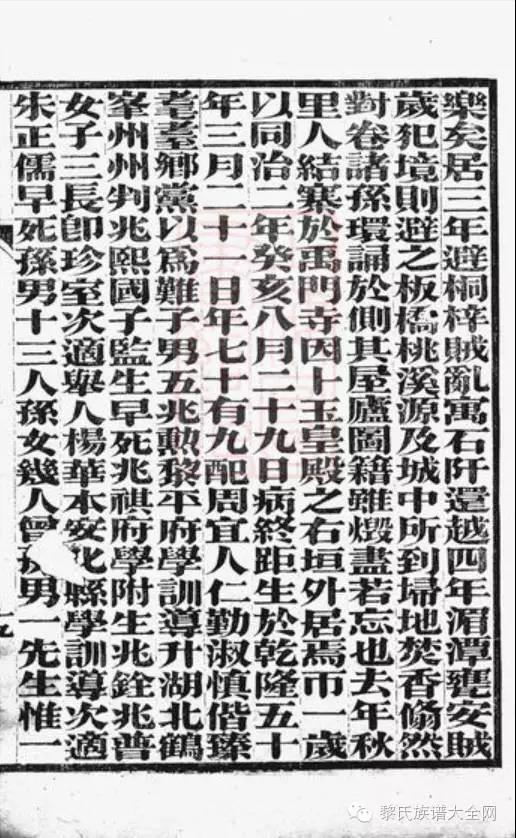 樂矣居三年避桐梓賊亂寓石阡還越四年湄潭甕安賊
歲犯境則避之板橋桃溪源及城中所到埽地焚香翛然
對卷諸孫環誦於側其屋廬圖籍雖燬盡若忘也去年秋
里人結寨於禹門寺因卜玉皇殿之右垣外居焉帀一歲
以同治二年癸亥八月二十九日病終距生於乾隆五十
年三月二十一日年七十有九配周宜人仁勤淑慎偕臻
耄耋鄉黨以為難子男五兆勲黎平府學訓導升湖北鶴
峯州州判兆熙國子監生早死兆祺府學附生兆銓兆普
女子三長卽珍室次適舉人楊華本安化縣學訓導次適
朱正儒早死孫男十三人孫女幾人曾孫男一先生惟一
九
黎氏族谱大全网